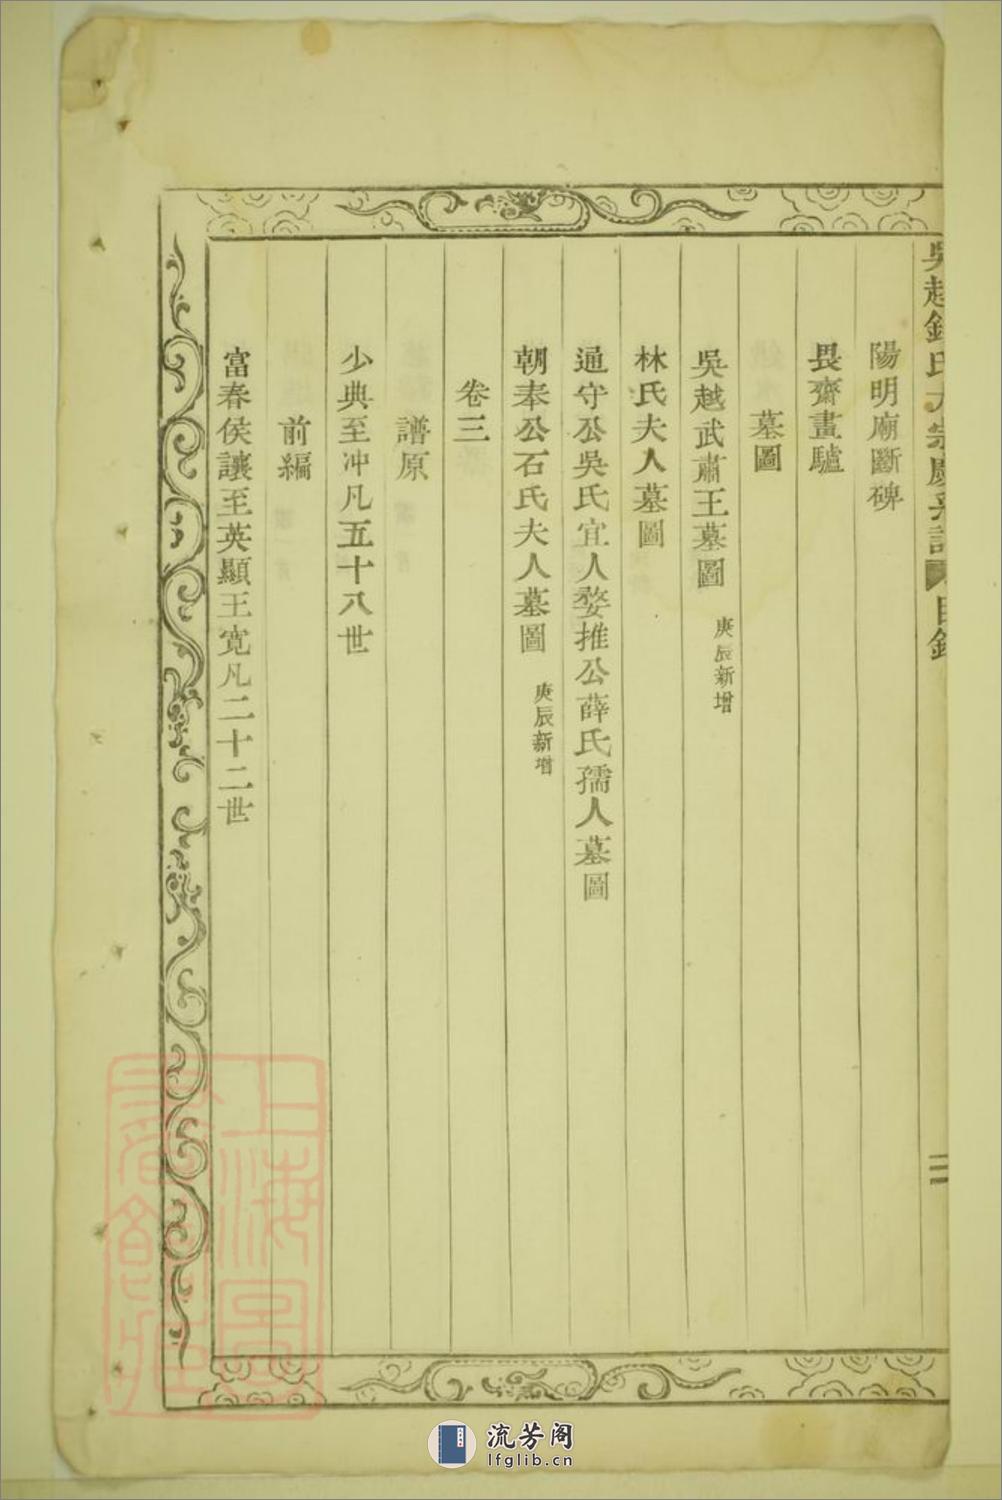 吳越錢氏大宗慶系譜 目錄 二
陽明廟斷碑
畏齋畫驢
墓圖
吳越武肅王墓圖 庚辰新增
林氏夫人墓圖
通守公吳氏宜人婺推公薛氏孺人墓圖
朝奉公石氏夫人墓圖 庚辰新增
卷三
譜原
少典至冲凡五十八世
前編
富春侯讓至英顯王寬凡二十二世
上海圖書館藏
流芳阁
lfglib.cn